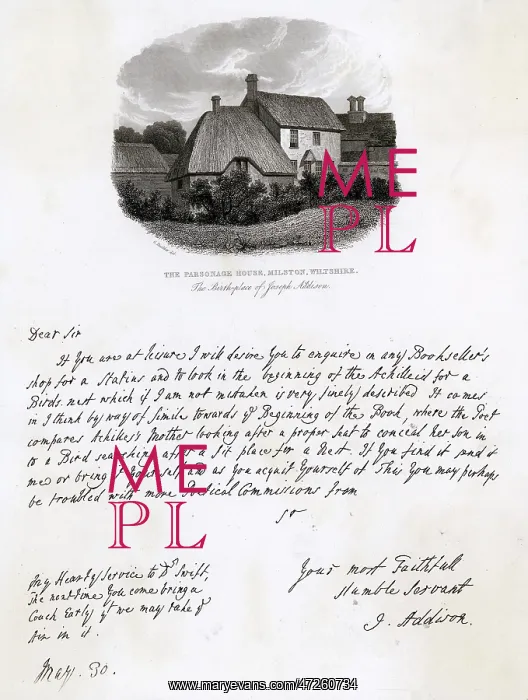 THE PARSONAGE HOUSE, MILSTON, WILTSHIRE.
The Birthplace of Joseph Addison.
ME
PL
Dear Sir
If You are at leisure I will desire You to enquire in any Bookseller's
shop for a Statius and to look in the beginning of the Achilleid for a
Birds-nest which if I am not mistaken is very finely described It comes
in I think by way of Simile towards yͤ Beginning of the Book, where the Poet
compares Achilles's Mother looking after a proper seat to conceal her Son in
to a Bird searching after a fit place for a Nest. If You find it send it
me or bring it Yourself and as You acquit Yourself of This You may perhaps
be troubled with more Poetical Commissions from
Sr
ME
PL
Your most Faithfull
Humble Servant
J. Addison.
My Hearty Service to Dr Swift,
The next time You come bring a
Coach Early yt we may take yͤ
Air in it.
May. 30.
www.maryevans.com/47260734